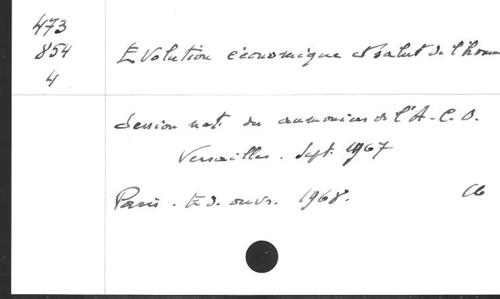 473
854
4
Evolution économique et salut de l'homme
Session nat. des aumoniers de l'A.C.O.
Versailles. Sept. 1967
Paris. Ed. ouvr. 1968.